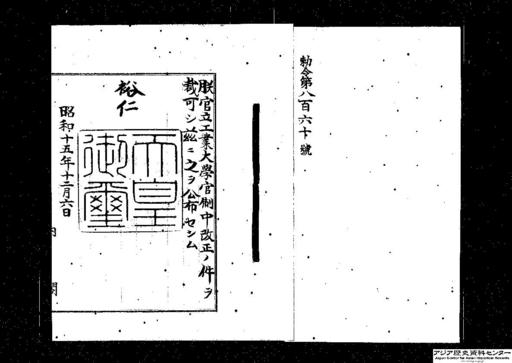 勅令第八百六十號
朕官立工業大學官制中改正ノ件ヲ
裁可シ茲ニ之ヲ公布セシム
裕仁
天皇御璽
昭和十五年十二月六日
内
閣
アジア歴史資料センター
Japan Center for Asian Historical Records